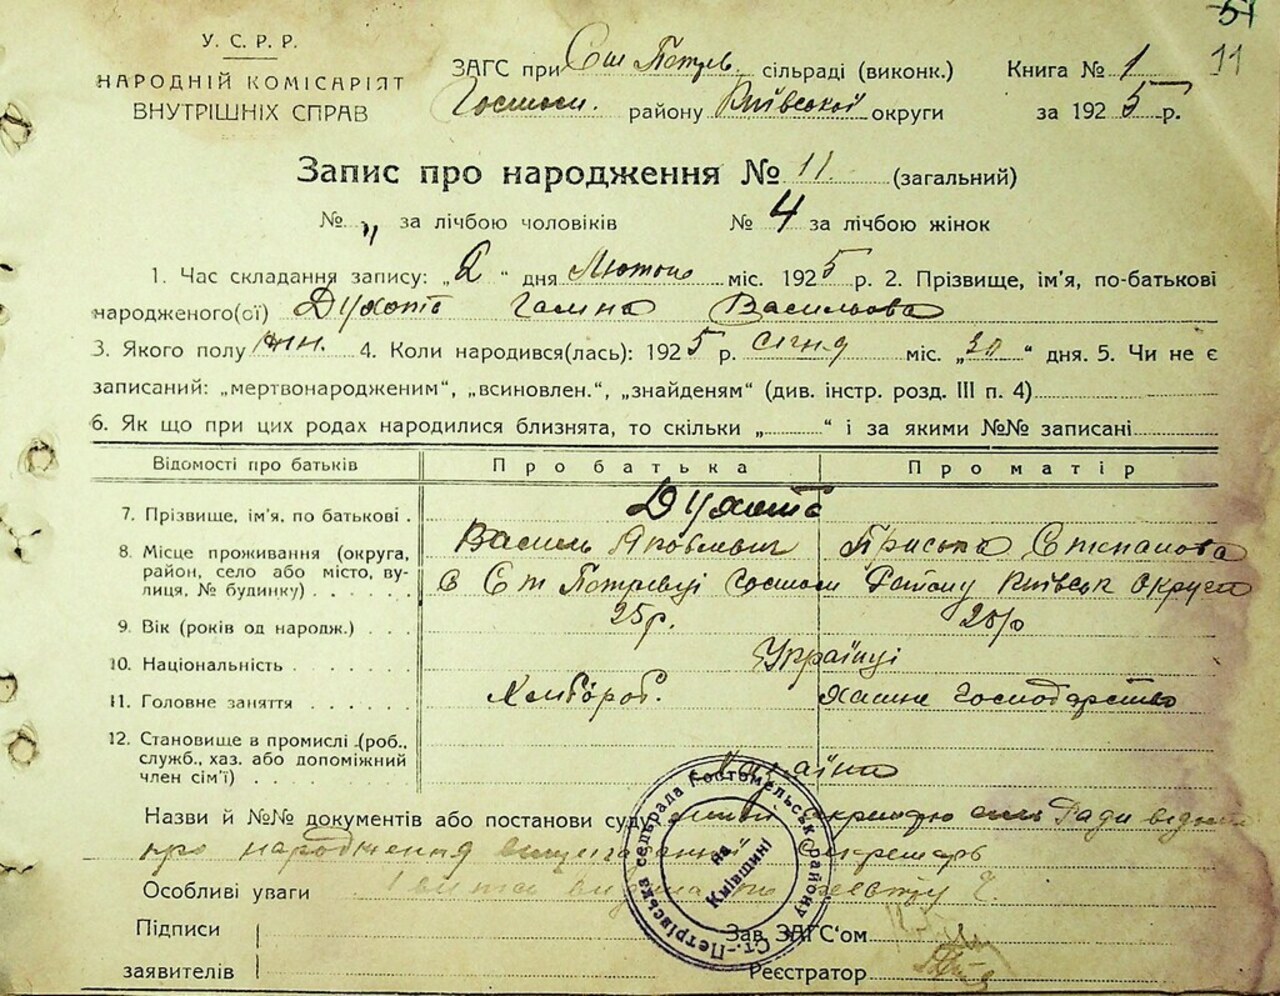 51
11
У. С. Р. Р.
НАРОДНІЙ КОМІСАРІЯТ
ВНУТРІШНІХ СПРАВ
ЗАГС при Ст Петрів. сільраді (виконк.) Книга № 1
Гостом. району Київської округи за 1925 р.
Запис про народження № 11. (загальний)
№ „ за лічбою чоловіків № 4 за лічбою жінок
1. Час складання запису: „2“ дня Лютого міс. 1925 р. 2. Прізвище, ім'я, по-батькові
народженого(ої) Духота Галина Васильова
3. Якого полу жін. 4. Коли народився(лась): 1925 р. Січня міс. „30“ дня. 5. Чи не є
записаний: „мертвонародженим“, „всиновлен.“, „знайденям“ (див. інстр. розд. III п. 4)
6. Як що при цих родах народилися близнята, то скільки „ “ і за якими №№ записані
Відомості про батьків Про батька Про матір
7. Прізвище, ім'я, по батькові . Духота
Василь Яковлевич Приська Степанова
8. Місце проживання (округа, район, село або місто, ву-
лиця, № будинку) . . . . . с Ст Петрівці Гостом Району Київськ Округи
9. Вік (років од народж.) . . . 25р. 25р
10. Національність . . . . . . Українці
11. Головне заняття . . . . . . Хлібороб. Хатнє Господарство
12. Становище в промислі (роб.,
служб., хаз. або допоміжний
член сім'ї) . . . . . . . .
Назви й №№ документів або постанови суду Ради
про народження Секретарь
Особливі уваги
Підписи
заявителів
Зав. ЗАГС'ом
Реєстратор
Ст.-Петрівська сельрада Гостомельськ району
на Київщині